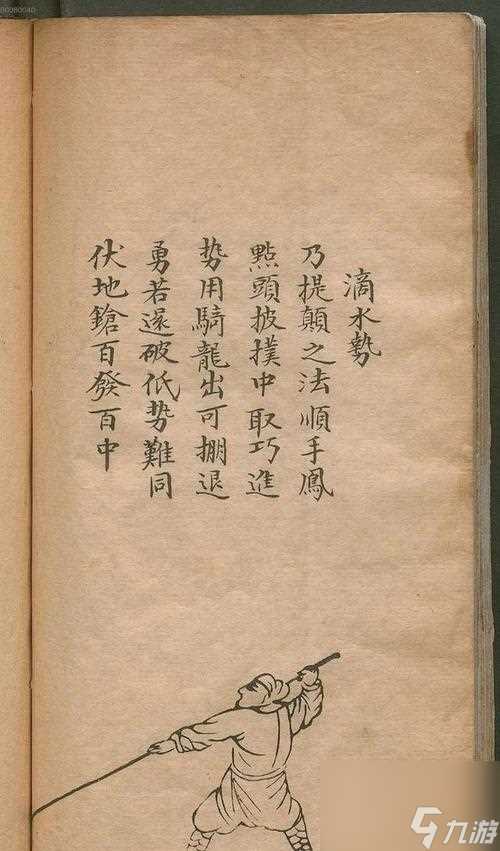 00080040
滴水勢
乃提顛之法順手鳳
點頭披撲中取巧進
势用騎龍出可掤退
勇若還破低势難同
伏地鎗百發百中
九游